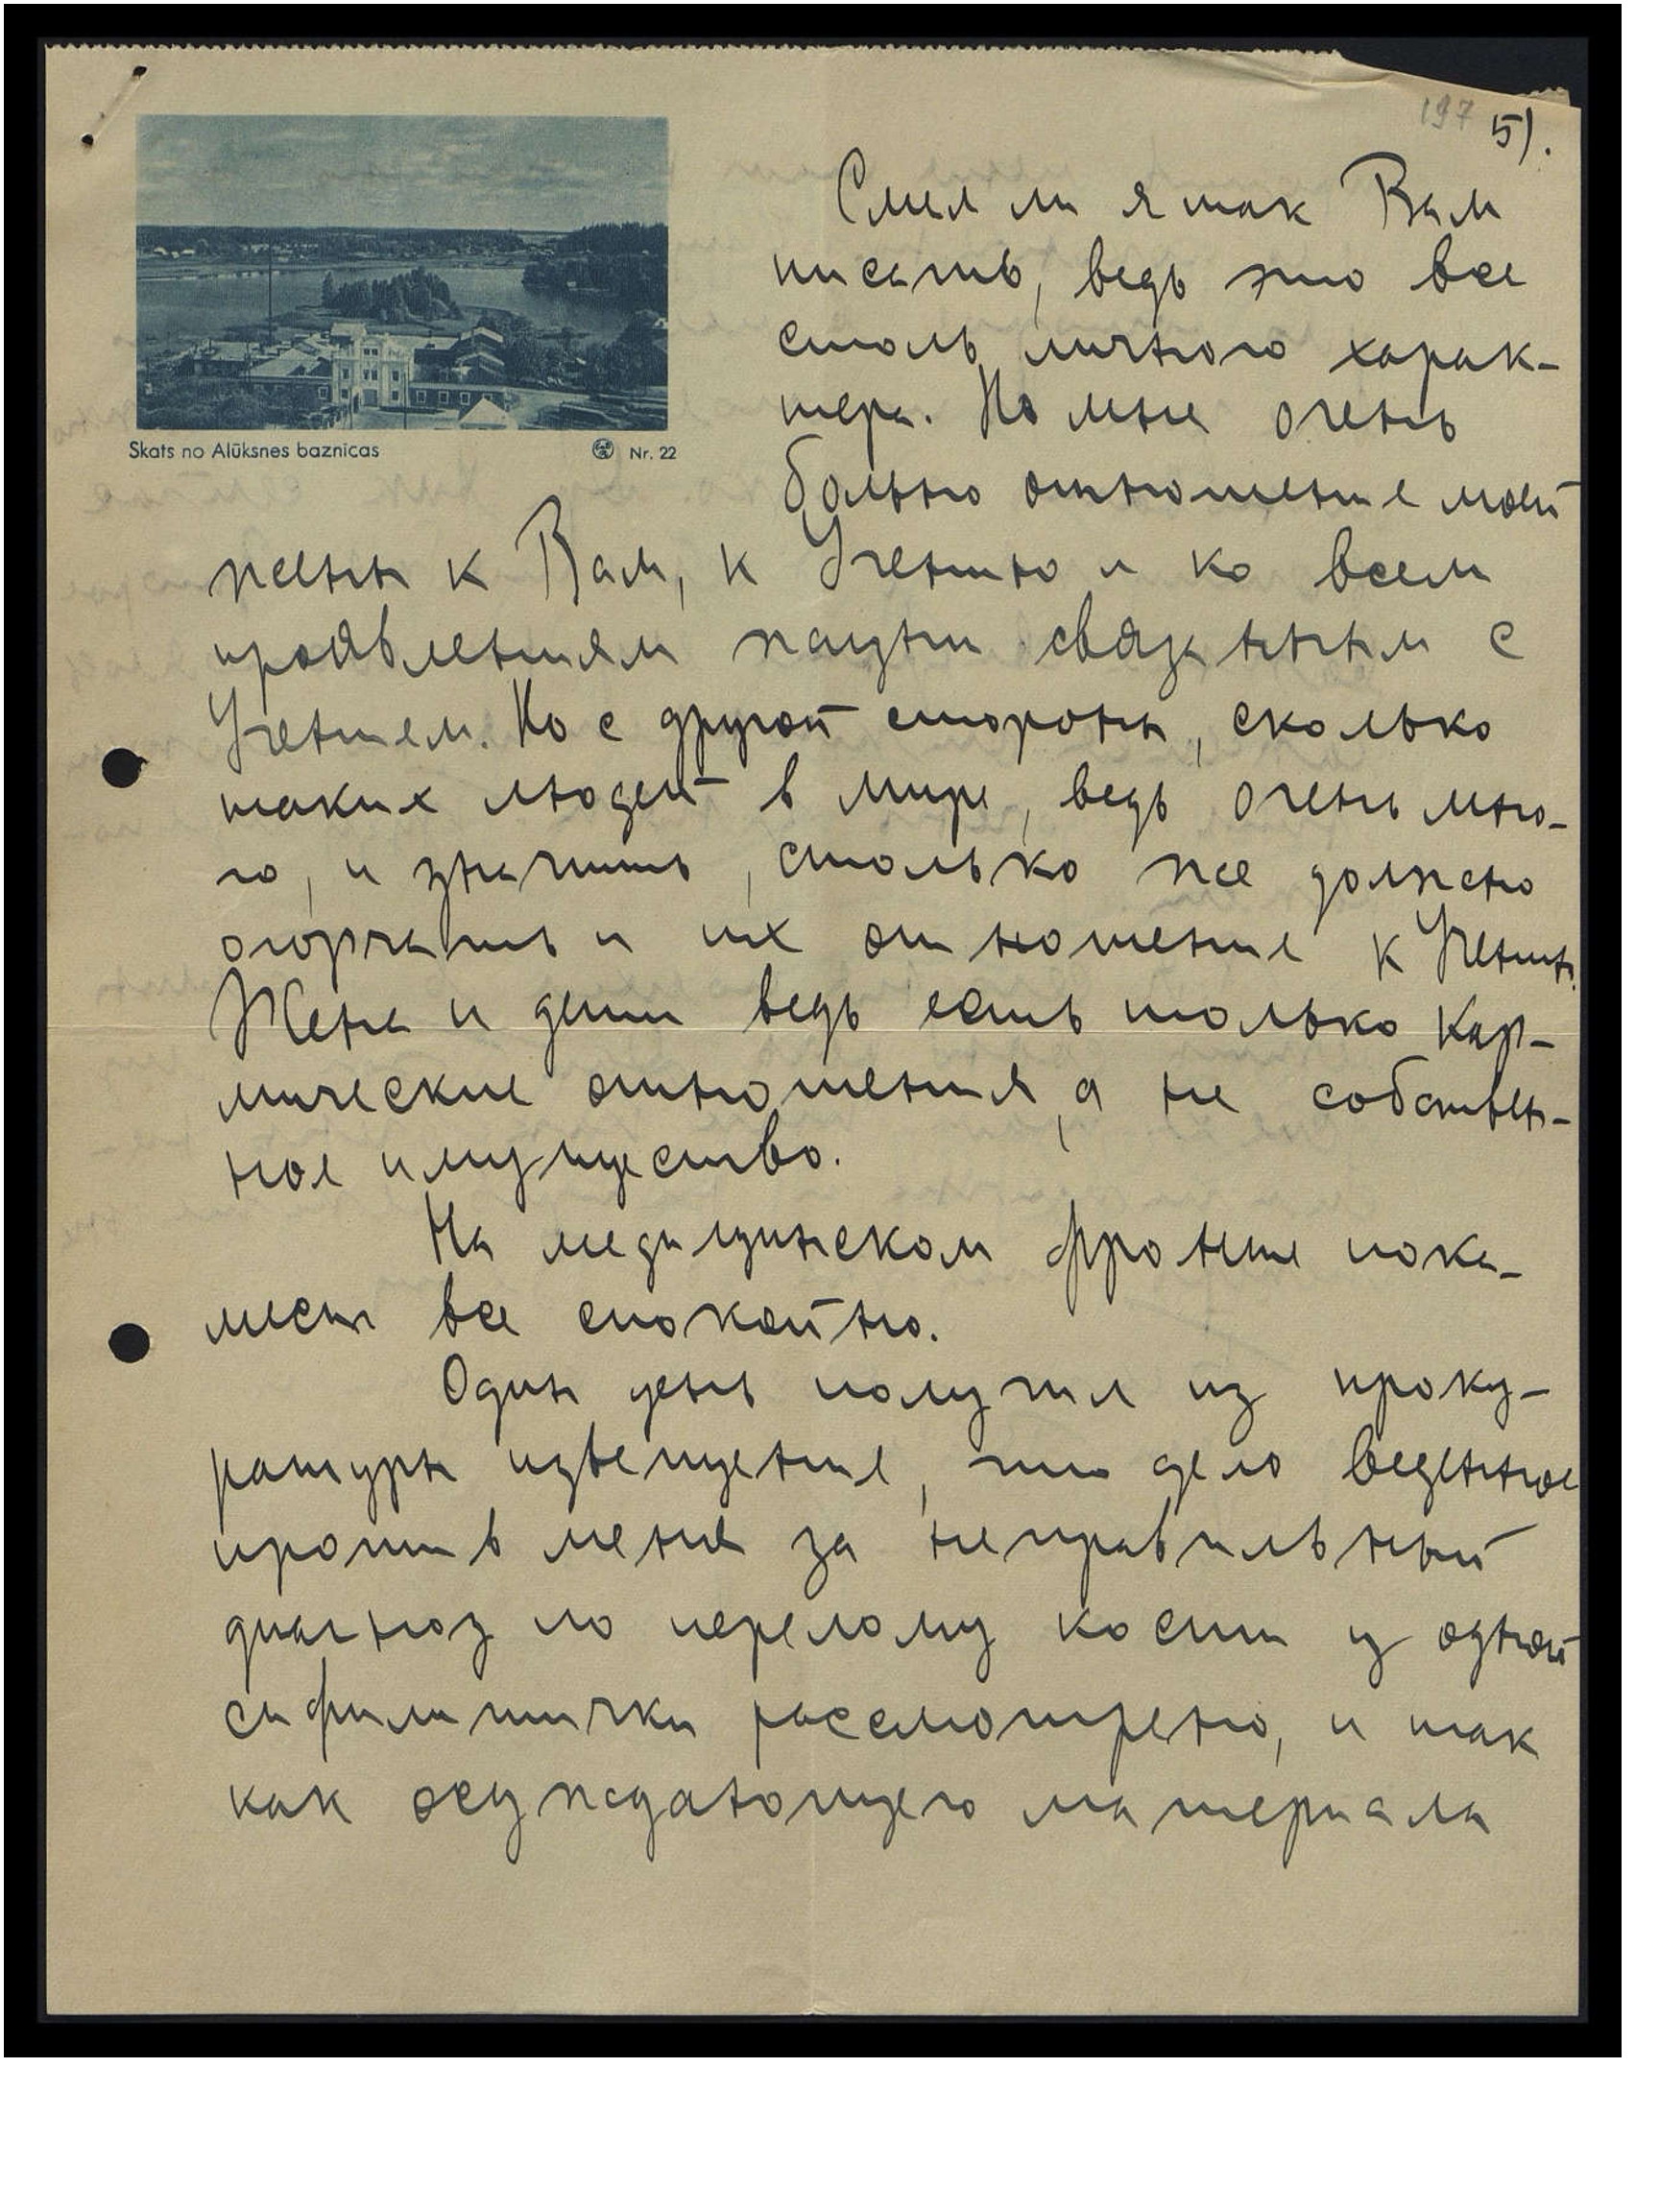 197 5).
Смел ли я так Вам
писать, ведь это все
столь личного харак-
тера. Но мне очень
больно отношение моей
жены к Вам, к Учению и ко всем
проявлениям жизни связанным с
Учением. Но с другой стороны, сколько
таких людей в мире, ведь очень мно-
го, и значить, столько же должно
огорчать и их отношение к Учению.
Жена и дети ведь есть только кар-
мические отношения, а не собствен-
ное имущество.
На медицинском фронте пока-
мест все спокойно.
Один день получил из проку-
ратуры извещение, что дело веденное
против меня за неправильный
диагноз по перелому кости у одной
сифилитички рассмотрено, и так
как осуждающего материала
Skats no Alūksnes baznīcas Nr. 22